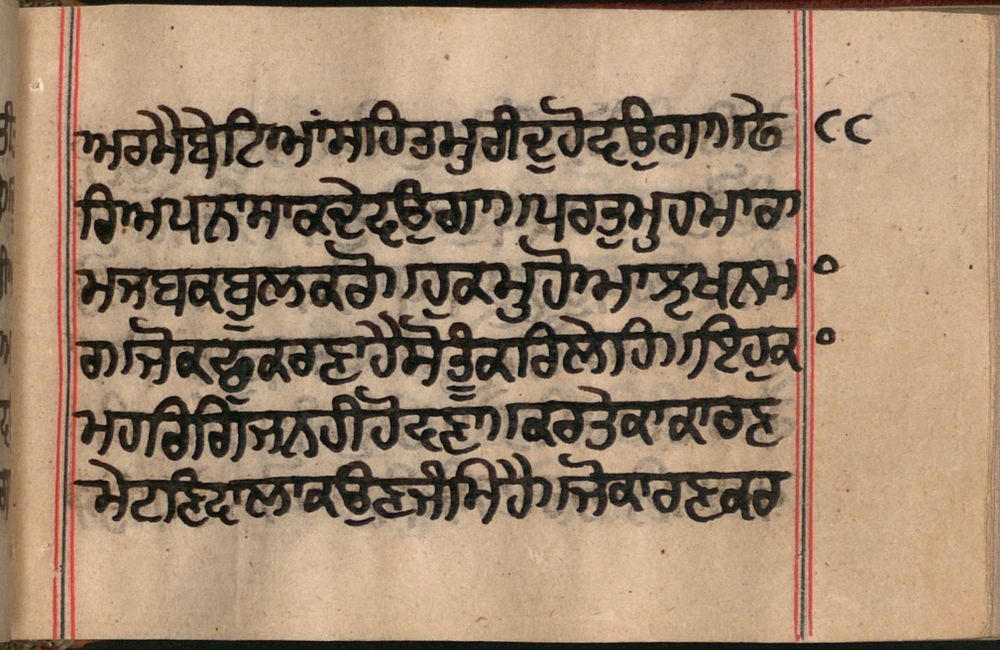 ਅਰਮੈਬੇਟਿਆਂਸਹਿਤਮੁਰੀਦੁਹੋਦਉੁਗਾ।ਫੇ ੮੮
ਰਿਅਪਨਾਸਾਕਦੇਦਉੁਗਾ।ਪਰਤੁਮੁਹਮਾਰਾ
ਮਜਬਕਬੂਲਕਰੋ।ਹੁਕਮੁਹੋਆਸ੍ਰਖਨਮ °
ਗ।ਜੋਕਛੁਕਰਣਾਹੈਸੋਤੂੰਕਰਿਲੇਹਿ।ਇਹੁਕ °
ਮਹਰਿਗਿਜਨਹੀਹੋਦਣਾ।ਕਰਤੇਕਾਕਾਰਣ
ਮੇਟਣਿਵਾਲਾਕਉੁਣਜੰਮਿਹੈ।ਜੋਕਾਰਣਕਰ